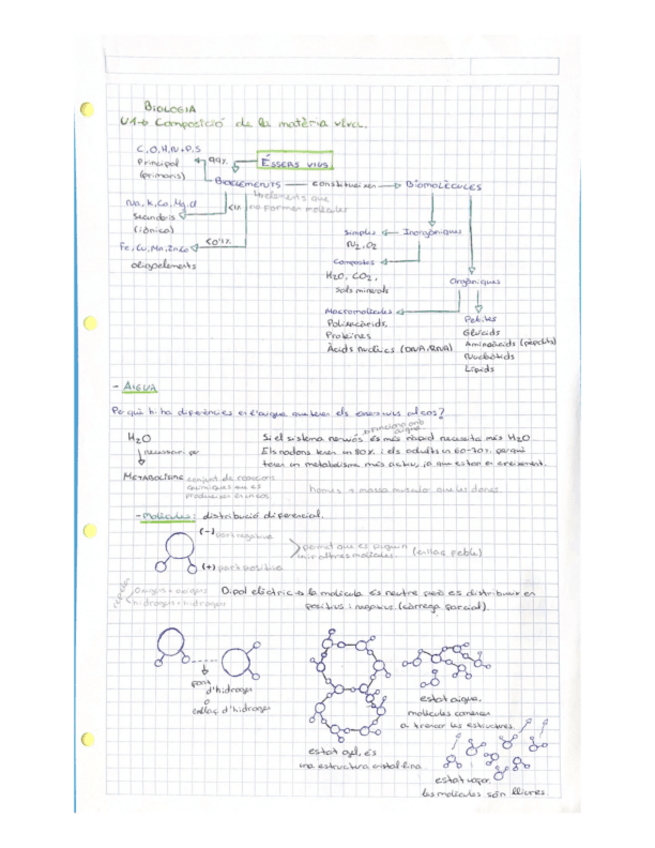 BIOLOGIA
U1→ Composició de la matèria viva.
C, O, H, N + P, S
Principal
(primaris)
99%
Éssers vius.
Bioelements
constitueixen
Biomolècules
<1%
elements que
no formen molècules
Na, K, Ca, Mg, Cl
Secundaris
(iònica)
<0'1%
Fe, Cu, Mn, Zn, Co
oligoelements
Simples
Inorgàniques
N2, O2
Compostes
H2O, CO2,
Sals minerals
Orgàniques
Macromolècules
Polisacàrids,
Proteïnes
Àcids nucleics (DNA, RNA)
Petites
Glúcids
Aminoàcids (pèptids)
Nucleòtids
Lípids
- AIGUA
Per què hi ha diferències en l'aigua que tenen els éssers vius?
funciona amb
aigua
H2O
necessari per
Si el sistema nerviós és més ràpid necessita més H2O.
Els nadons tenen un 80% i els adults un 60-70% perquè
tenen un metabolisme més actiu, ja que estan en creixement.
METABOLISME conjunt de reaccions
químiques que es
produeixen
homes + massa muscular que les dones.
- Molècules: distribució diferencial.
(-) part negativa
(+) part positiva
permet que es puguin
unir altres molècules.
(enllaç feble)
repelen
Oxigen + oxigen
hidrogen + hidrogen
Dipol elèctric → la molècula és neutre però es distribueix en
positius i negatius. (càrrega parcial).
pont
d'hidrogen
o
enllaç d'hidrogen
estat gel, és
una estructura cristal·lina
estat aigua,
molècules comencen
a trencar les estructures.
estat vapor,
les molècules són lliures.